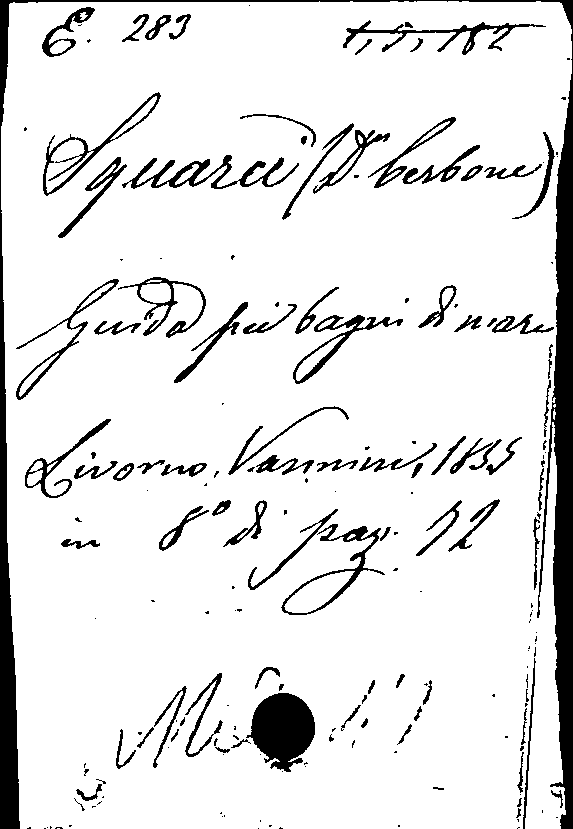 E. 283 1, 5, 182
Squarci (Dr. Cerbone)
Guida pei bagni di mare
Livorno, Vannini, 1835
in 8° di pag. 72